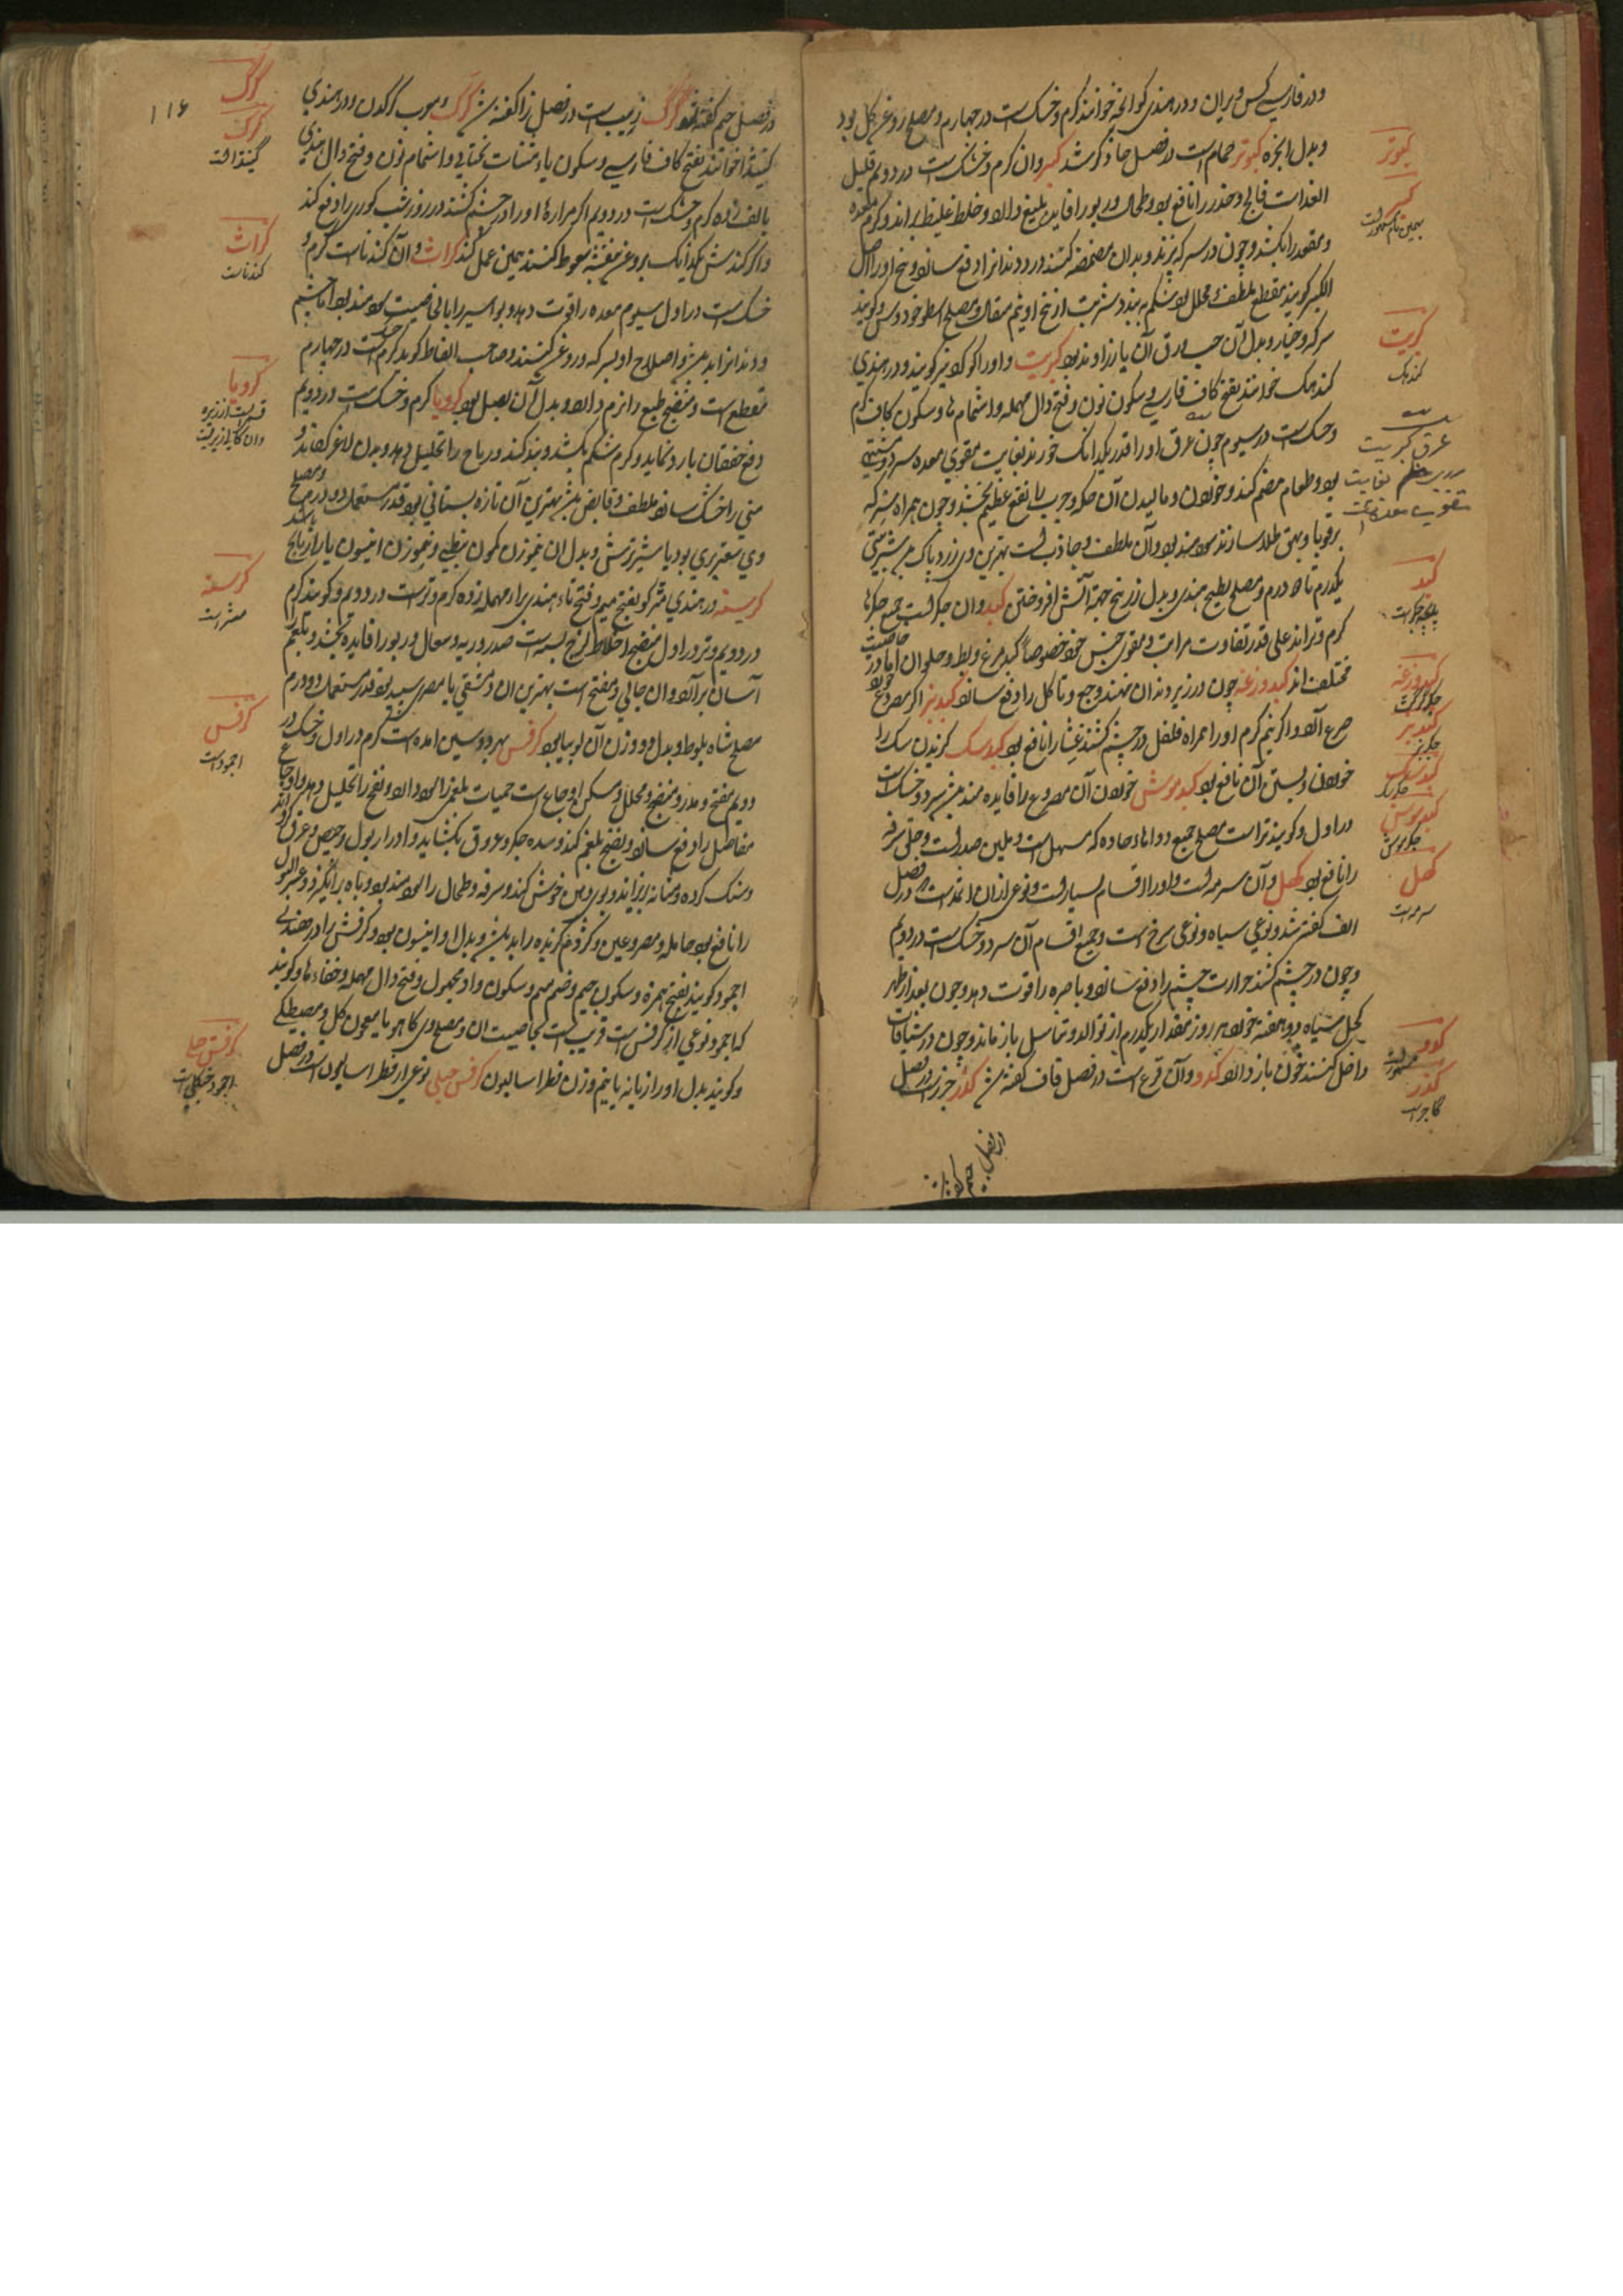 ودر فارسی کس ویران ودر هندی کوانچه خوانند گرم وخشک است در چهارم ومصلح روغن گل بود
وبدل انجره کبوتر حمام است در فصل حا ذکر شد کبر وان گرم وخشک است در دویم قلیل
الغذاست فالج وخدر را نافع بود وطحال وربو را فایده بلیغ دارد وخلط غلیظ براند وکرم معده
ومقعد را بکشد وچون در سرکه پزند وبدان مضمضه کنند درد دندانرا دفع سازد وبیخ او را اصل
الکبر گویند مقطع وملطف ومحلل بود شکم به بندد شربت از بیخ او نیم مثقال ومصلح اسطوخودوس وگویند
سرکه وخیار وبدل آن حب ورق آن یا زراوند بود کبریت واورا گوگرد نیز گویند ودر هندی
گندهک خوانند بفتح کاف فارسی وسکون نون وفتح دال مهمله واشمام ها وسکون کاف گرم
وخشک است در سیوم چون عرق اورا قدر یکدانک خورند بغایت مقوی معده سرد ومشتهی
بود وطعام هضم کند وخوردن ومالیدن آن حکه وجرب را نفع عظیم بخشد وچون همراه سرکه
برقوبا وبهق طلا سازند سودمند بود وآن ملطف وجاذب است بهترین وی زرد پاک شربتی
یکدرم تا دو درم ومصلح بطیخ هندی وبدل زرنیخ جهة آتش افروختن کبد وان جگر است جمیع جگرها
گرم وتر اند علی قدر تفاوت مراتب ومقوی جنس خود خصوصاً کبد مرغ وبط وحلوان اما در خاصیت
مختلف اند کبد وزغه چون در زیر دندان نهند وجع وتاکل را دفع سازد کبد بز اگر مصروع خورد
صرع آرد واگر نیم گرم اورا همراه فلفل در چشم کشند عشا را نافع بود کبد سگ گزیدن سگ را
خوردن وبستن آن نافع بود کبد موش خوردن آن مصروع را فایده مند کثیرا سرد وخشک است
در اول وگویند تر است مصلح جمیع دواهاء حاده که مسهل است وملین صدر است وحلق سرفه
را نافع بود کحل وآن سرمه است واورا اقسام بسیار است ونوعی از ان اثمد است در فصل
الف گفته شد ونوعی سیاه ونوعی سرخ است وجمیع اقسام آن سرد وخشک است در دویم
وچون در چشم کشند حرارت چشم را دفع سازد وباصره را قوت دهد وچون بعد از طهر
کحل سیاه دو هفته خورد هر روز مقدار یکدرم از توالد وتناسل باز ماند وچون در شیافات
داخل کنند خون باز دارد کدو وآن قرع است در فصل قاف گفته شد گذر جزر است در فصل
کبوتر
کبر
بهمین نام مشهور است
کبریت
گندهک
عرق کبریت
بغایت
کبد
کبد وزغه
کبد بز
جگر بز
کبد سگ
کبد موش
جگر موش
کحل
سرمه است
کدو
گذر
گاجر است
۱۱۶
در فصل جیم گفته شد گرگ ذیب است در فصل ذا گفته شد کرگ ومعرب کرگدن ودر هندی
گینڈا خوانند بفتح کاف فارسی وسکون یاء مثنات تحتانی واشمام نون وفتح دال هندی
بالف زده گرم وخشک است در دویم اگر مراره اورا در چشم کشند در روز شب کوری را دفع کند
واگر کندش یکدانک بروغن بنفشه سعوط کنند همین عمل کند کراث وآن گندناست گرم و
خشک است در اول سیوم معده را قوت دهد وبواسیر را بالخاصیت سودمند بود اما چشم
ودندانرا بد باشد واصلاح او بسرکه وروغن کنند وصاحب الفاظ گوید گرم وخشک است در چهارم
مقطع است ومنضج طبع را نرم دارد وبدل آن بصل بود کرویا گرم وخشک است در دویم
دفع خفقان بارد نماید وکرم شکم بکشد وبند کند وریاح را تحلیل دهد وبدن لاغر گرداند و
منی را خشک سازد ملطف وقابض باشد بهترین آن تازه بستانی بود قدر مستعمل دو درم ومصلح
وی سعتر بری بود یا شیر ترش وبدل ان نیم وزن کمون نبطی ونیم وزن انیسون یا رازیانج باشد
کرسنه در هندی مٹر گویند بفتح میم وفتح تاء هندی براء مهمله زده گرم وتر است در دویم وگویند گرم
در دویم وتر در اول منضج اخلاط لزج است صدر وریه وسعال وربو را فایده بخشد وبلغم
آسان برآرد وان جالی ومفتح است بهترین ان دمشقی یا مصری سپید بود قدر مستعمل دو درم
مصلح شاه بلوط وبدل دو وزن آن لوبیا بود کرفس بهر دو سین آمده است گرم در اول وخشک در
دویم مفتح ومدر ومنضج ومحلل ومسکن اوجاع است حمیات بلغمی را سود دارد ونفخ را تحلیل دهد واوجاع
مفاصل را دفع سازد ونضج بلغم کند وسده جگر وعروق بکشاید وادرار بول وحیض وعرق آرد
وسنگ گرده ومثانه بریزاند وبوی دهن خوش کند وسرفه وطحال را سودمند بود وباه برانگیزد وعسر البول
را نافع بود حامله ومصروعین وکژدم گزیده را بد باشد وبدل او انیسون بود وکرفس را در هندی
اجمود گویند بفتح همزه وسکون جیم وضم میم وسکون واو مجهول وفتح دال مهمله وخفاء ها وگویند
که اجمود نوعی از کرفس است قریب است بخاصیت ان ومصلح وی کاهو یا معجون گل ومصطکی
وگویند بدل او رازیانه یا نیم وزن فطراسالیون کرفس جبلی نوعی از فطراسالیون است در فصل
گرگ
کرگ
گینڈا است
کراث
گندناست
کرویا
کرسنه
مٹر است
کرفس
اجمود است
کرفس جبلی
اجمود جنگلی است